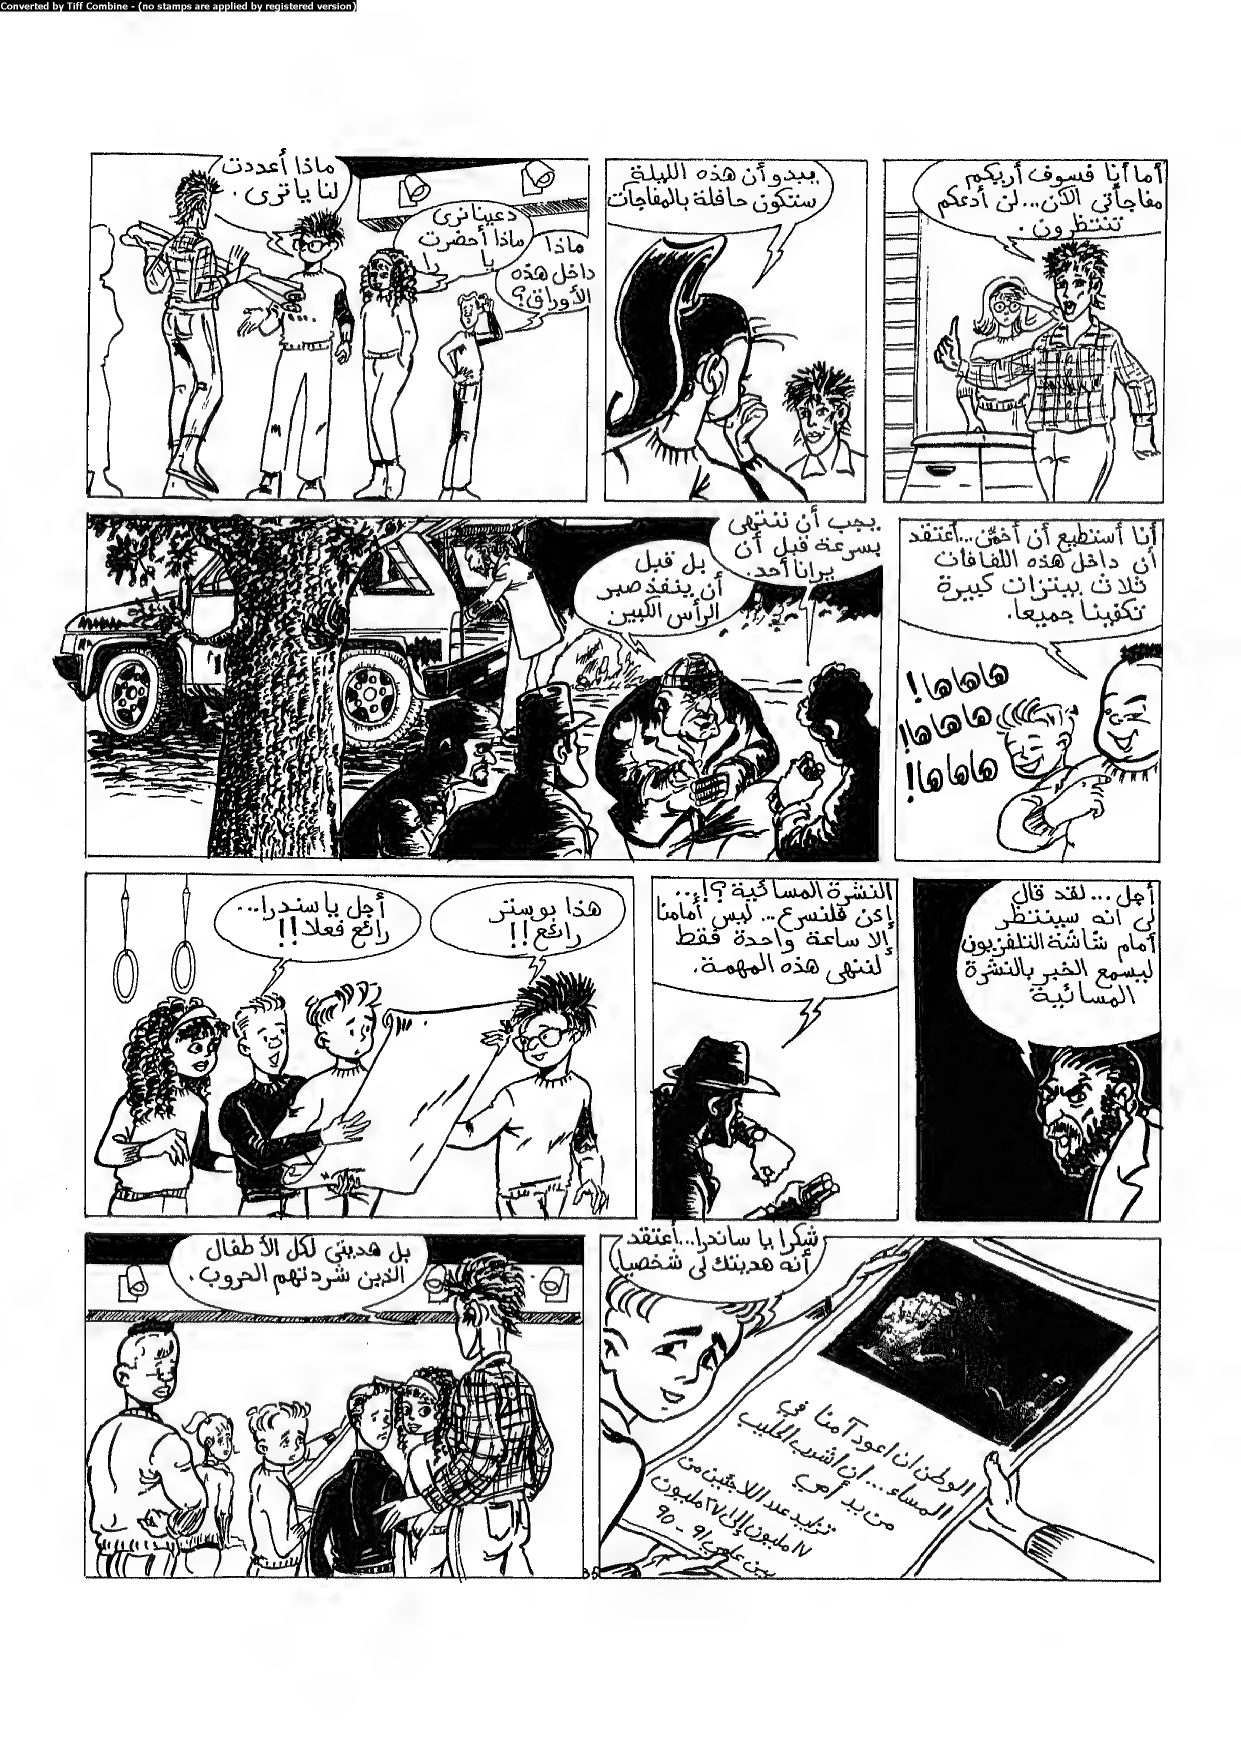 Converted by Tiff Combine - (no stamps are applied by registered version)
أما أنا فسوف أريكم
مفاجأتي الآن...لن أدعكم
تنتظرون.
يبدو أن هذه الليلة
ستكون حافلة بالمفاجآت
ماذا أعددت
لنا يا ترى.
دعينا نرى
ماذا أحضرت
يا
ماذا
داخل هذه
الأوراق؟
أنا أستطيع أن أخمّن...أعتقد
أن داخل هذه اللفافات
ثلاث بيتزات كبيرة
تكفينا جميعا.
هاهاها!
هاهاها!
هاهاها!
يجب أن ننتهي
بسرعة قبل أن
يرانا أحد.
بل قبل
أن ينفذ صبر
الرأس الكبير
أجل...لقد قال
لي انه سينتظر
أمام شاشة التلفزيون
ليسمع الخبر بالنشرة
المسائية
النشرة المسائية؟!...
إذن فلنسرع...ليس أمامنا
إلا ساعة واحدة فقط
لننهي هذه المهمة.
هذا بوستر
رائع!!
أجل يا سندرا...
رائع فعلا!!
شكرا يا ساندرا...أعتقد
أنه هديتك لي شخصيا
الوطن ان اعود آمنا في
المساء...ان اشرب الحليب
من يد أمي
تزايد عدد اللاجئين من
١٧ مليون إلى ٢٧ مليون
بين عامي ٩١ - ٩٥
بل هديتي لكل الأطفال
الذين شردتهم الحروب.
35